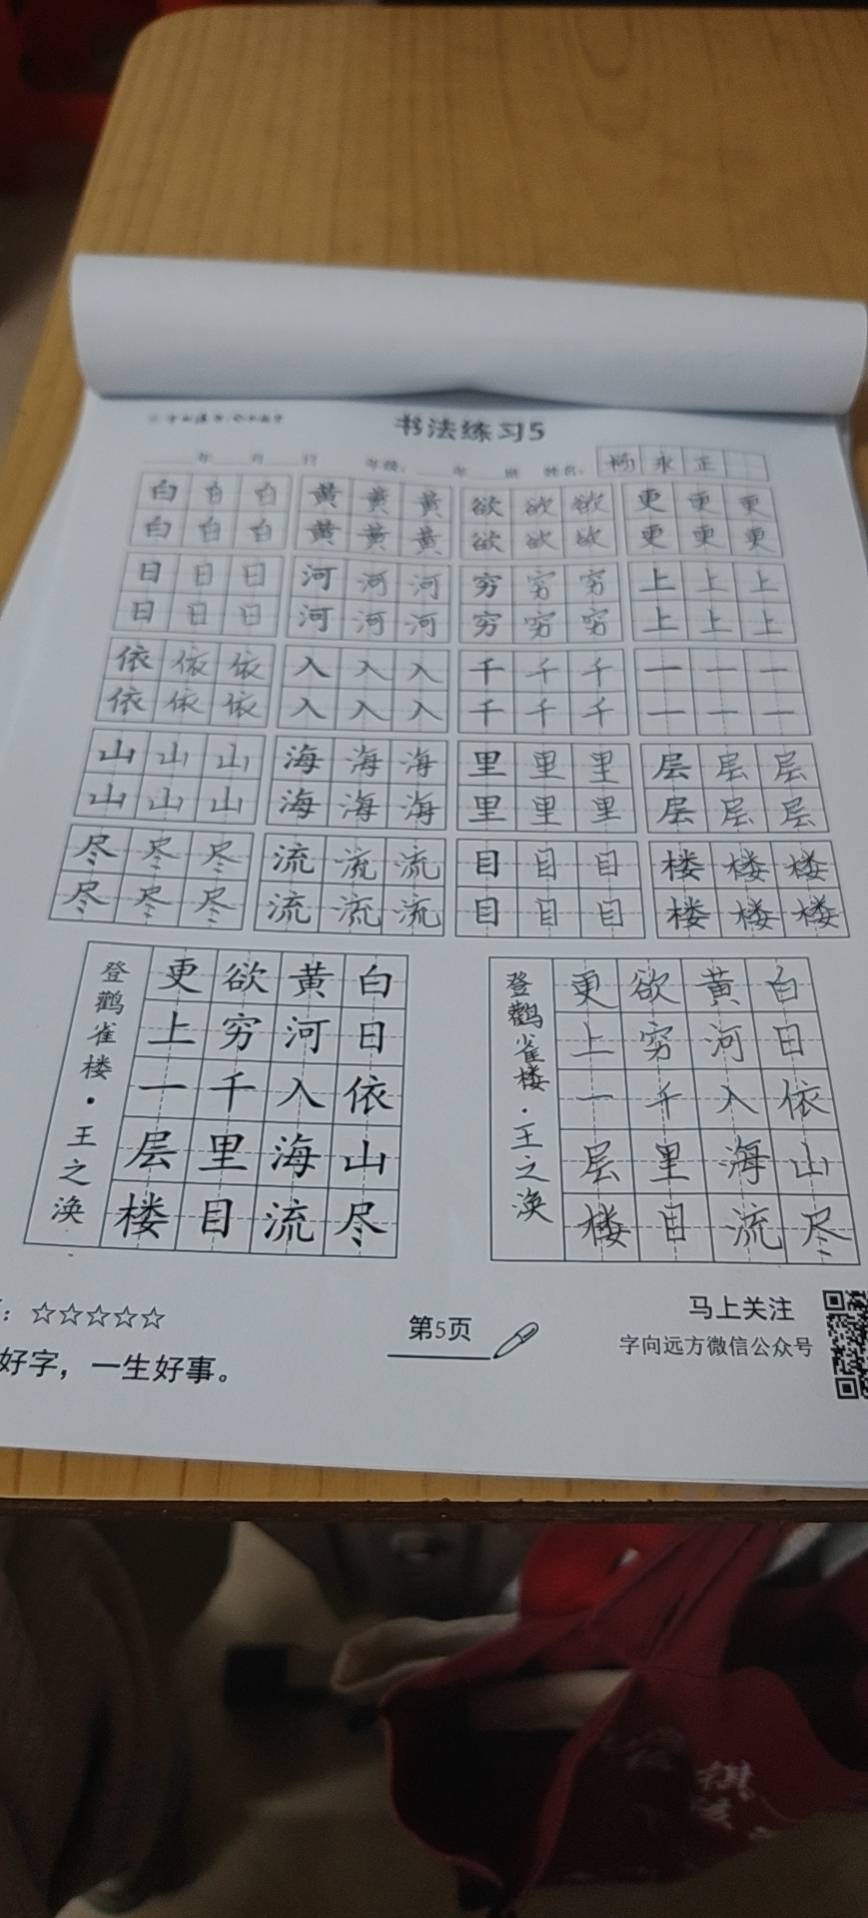 书法练习5
年 月 日 年级： 年 班 姓名： 杨永正
白白白 黄黄黄 欲欲欲 更更更
白白白 黄黄黄 欲欲欲 更更更
日日日 河河河 穷穷穷 上上上
日日日 河河河 穷穷穷 上上上
依依依 入入入 千千千 一一一
依依依 入入入 千千千 一一一
山山山 海海海 里里里 层层层
山山山 海海海 里里里 层层层
尽尽尽 流流流 目目目 楼楼楼
尽尽尽 流流流 目目目 楼楼楼
登鹳雀楼·王之涣
白日依山尽
黄河入海流
欲穷千里目
更上一层楼
登鹳雀楼·王之涣
白日依山尽
黄河入海流
欲穷千里目
更上一层楼
：☆☆☆☆☆
好字，一生好事。
第5页
马上关注
字向远方微信公众号